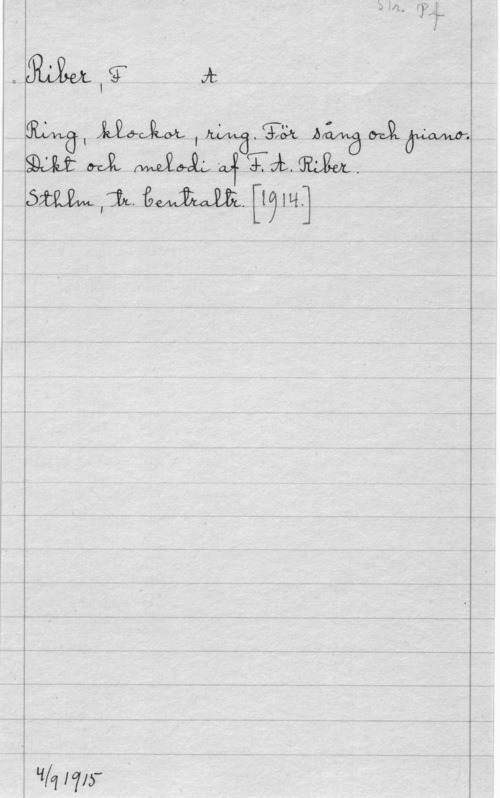 Pf
Riber, F A
Ring, klockor, ring. För sång och piano.
Dikt och melodi af F. A. Riber.
Sthlm, tr. Centraltr. [1914.]
4/9 1915